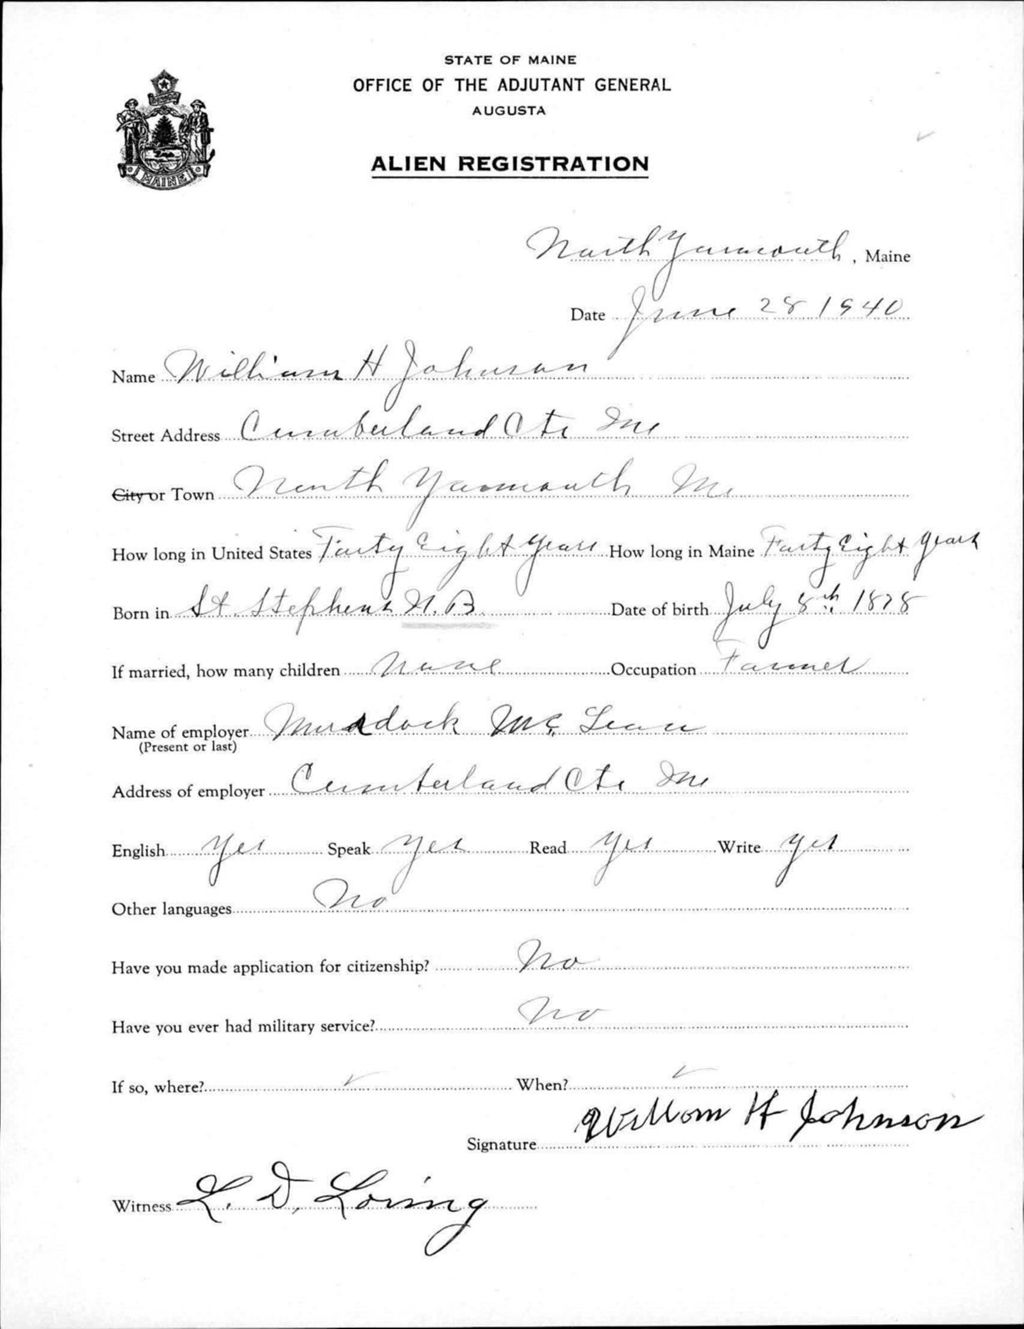 STATE OF MAINE
OFFICE OF THE ADJUTANT GENERAL
AUGUSTA
ALIEN REGISTRATION
MAINE
North Yarmouth, Maine
Date June 28 1940
Name William H Johnson
Street Address Cumberland Ctr Me
City or Town North Yarmouth Me
How long in United States Forty Eight Years How long in Maine Forty Eight Years
Born in St. Stephens N.B. Date of birth July 8th, 1878
If married, how many children None Occupation Farmer
Name of employer Murdock Mc Lean
(Present or last)
Address of employer Cumberland Ctr Me
English Yes Speak Yes Read Yes Write Yes
Other languages No
Have you made application for citizenship? No
Have you ever had military service? No
If so, where? When?
Signature William H Johnson
Witness L. D. Loring